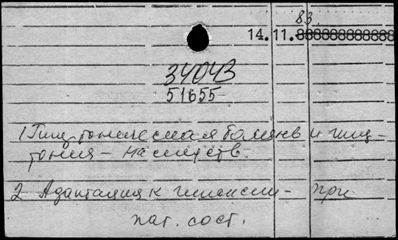 83.
14.11.888888888888
34043
51655
1 Гипертоническая болезнь и гипер-
тония – наследств.
2 Адаптация к гипоксии – при
пат. сост.